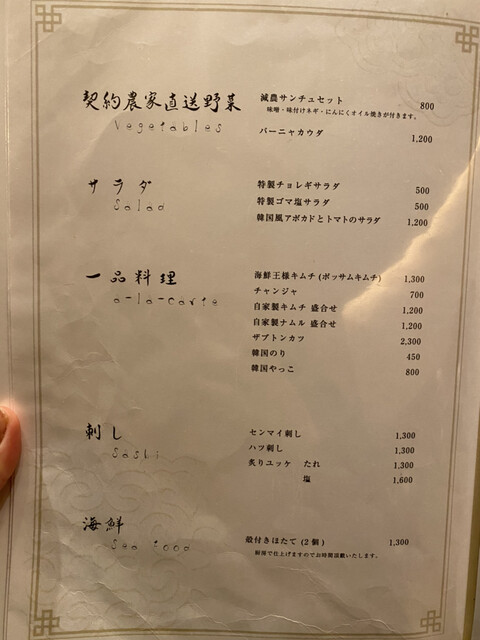 契約農家直送野菜
Vegetables
減農サンチュセット 800
味噌・味付けネギ・にんにくオイル焼きが付きます。
バーニャカウダ 1,200
サラダ
Salad
特製チョレギサラダ 500
特製ゴマ塩サラダ 500
韓国風アボカドとトマトのサラダ 1,200
一品料理
a-la-carte
海鮮王様キムチ(ポッサムキムチ) 1,300
チャンジャ 700
自家製キムチ 盛合せ 1,200
自家製ナムル 盛合せ 1,200
ザブトンカツ 2,300
韓国のり 450
韓国やっこ 800
刺し
Sashi
センマイ刺し 1,300
ハツ刺し 1,300
炙りユッケ たれ 1,300
塩 1,600
海鮮
Sea food
殻付きほたて(2個) 1,300
厨房で仕上げますのでお時間頂戴いたします。